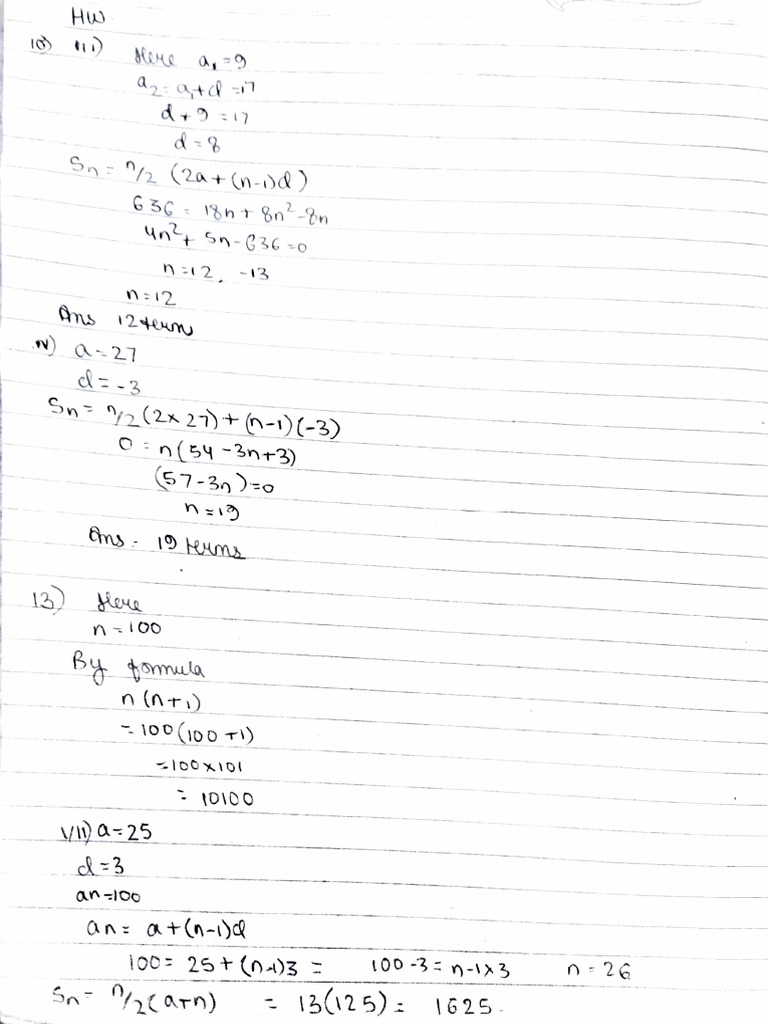 HW
10) iii) Here a₁ = 9
a₂ = a₁+d = 17
d + 9 = 17
d = 8
Sn = n/2 (2a + (n-1)d)
636 = 18n + 8n² - 8n
4n² + 5n - 636 = 0
n = 12, -13
n = 12
Ans 12 term
iv) a = 27
d = -3
Sn = n/2 (2 × 27) + (n-1)(-3)
0 = n(54 - 3n + 3)
(57 - 3n) = 0
n = 19
Ans - 19 terms
13) Here
n = 100
By formula
n(n+1)
= 100(100+1)
= 100×101
= 10100
VII) a = 25
d = 3
an = 100
an = a + (n-1)d
100 = 25 + (n-1)3 = 100 - 3 = n-1×3 n = 26
Sn = n/2 (a+n) = 13(125) = 1625.